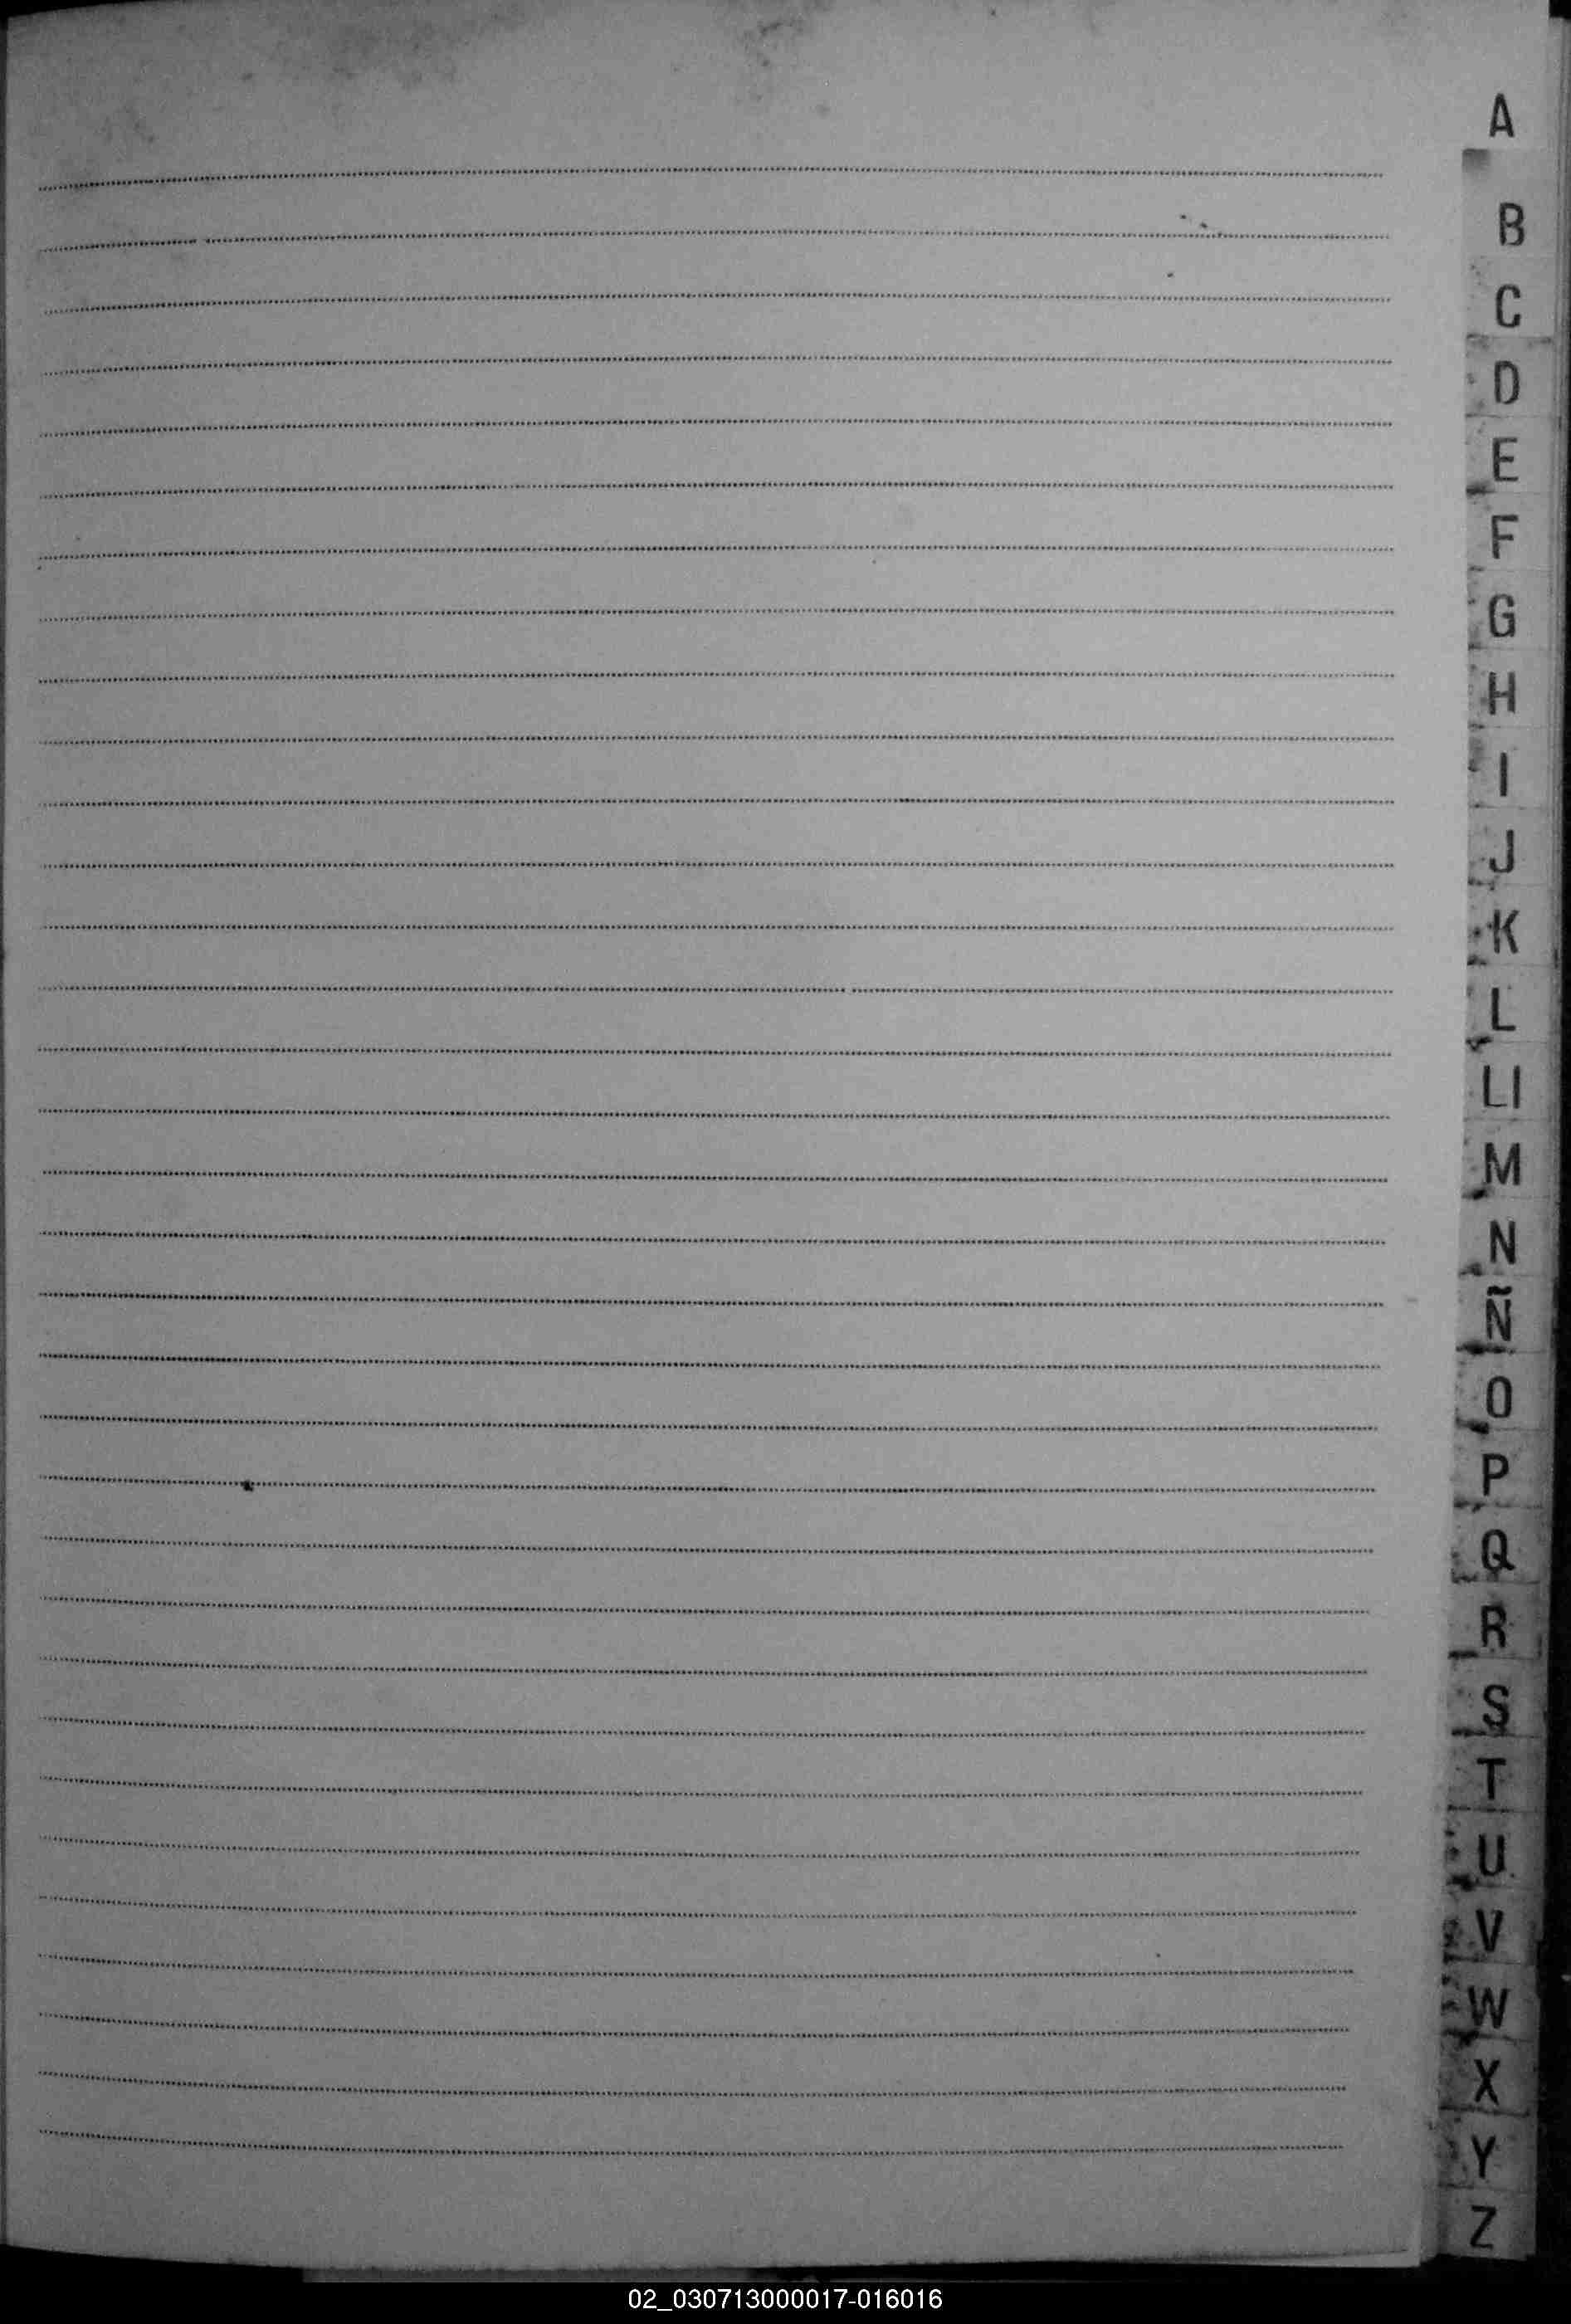 A
B
C
D
E
F
G
H
I
J
K
L
Ll
M
N
Ñ
O
P
Q
R
S
T
U
V
W
X
Y
Z
02_030713000017-016016